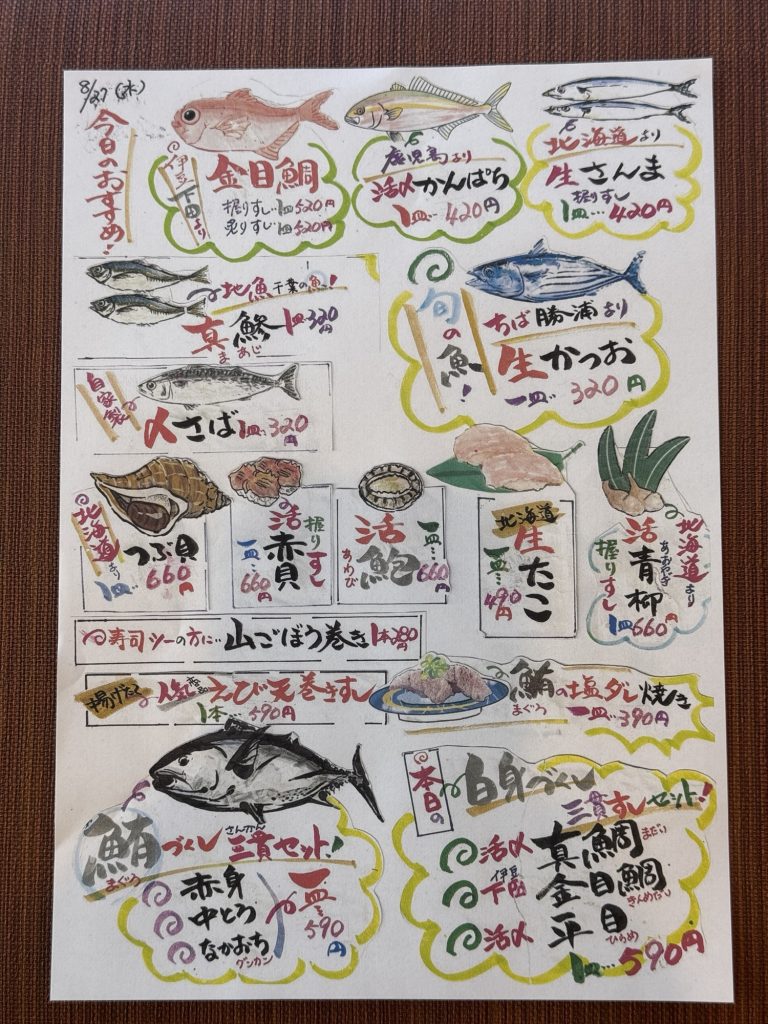 8/27(水)
今日のおすすめ!
伊豆下田より
金目鯛
握りずし…1皿520円
炙りずし…1皿520円
鹿児島より
活〆かんぱち
1皿…420円
北海道より
生さんま
握りずし
1皿…420円
地魚千葉の魚!
真鯵1皿320円
まあじ
旬の魚!
ちば勝浦より
生かつお
一皿…320円
自家製
〆さば1皿…320円
北海道より
つぶ貝
1皿…660円
活赤貝
握りずし
一皿…660円
活鮑
あわび
一皿…660円
北海道
生たこ
一皿…490円
北海道より
活青柳
あおやぎ
握りずし
1皿660円
寿司ツーの方に…山ごぼう巻き1本280円
揚げたく人気商品えび天巻きずし
1本…590円
鮪の塩ダレ焼き
まぐろ
一皿…390円
鮪づくし三貫セット!
まぐろ
さんかん
赤身
中とろ
なかおち
グンカン
一皿…590円
本日の
白身づくし
三貫ずしセット!
活〆真鯛
まだい
伊豆下田金目鯛
きんめだい
活〆平目
ひらめ
1皿…590円